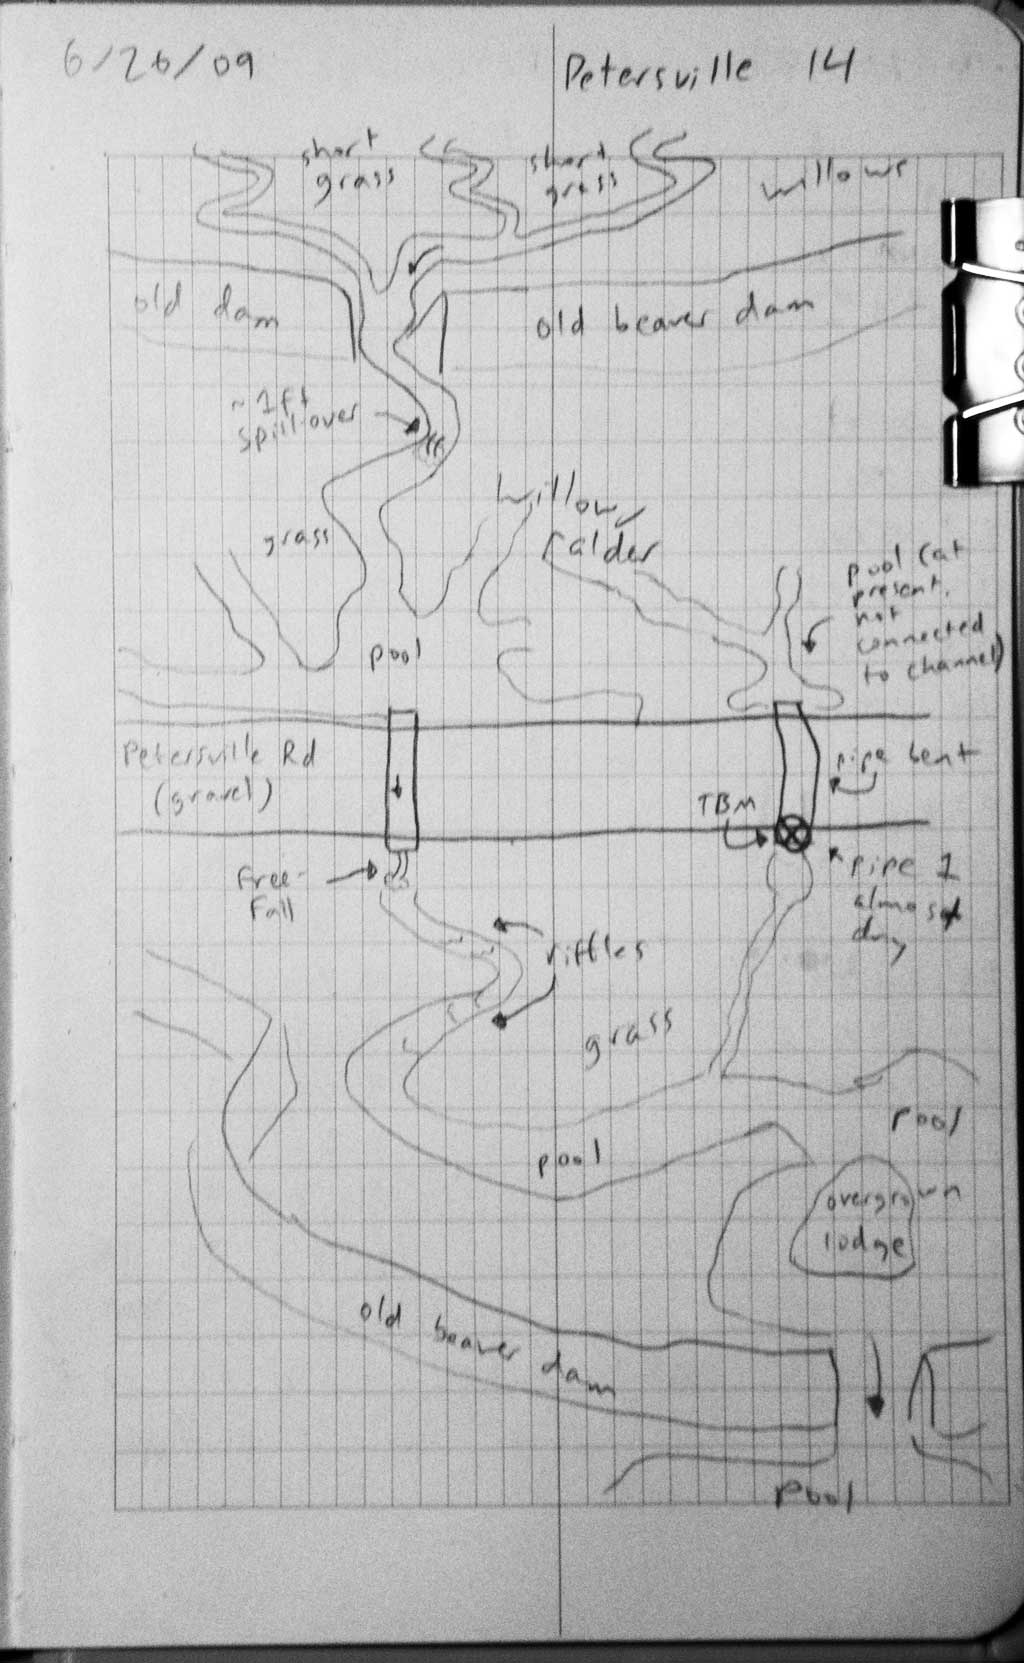 6/26/09
Petersville 14
short
grass
short
grass
willows
old dam
old beaver dam
~1ft
spill-over
willow/
alder
grass
pool
pool (at
present,
not
connected
to channel)
Petersville Rd
(gravel)
pipe bent
TBM
Free-
Fall
pipe 1
almost
dry
riffles
grass
pool
pool
overgrown
lodge
old beaver dam
pool